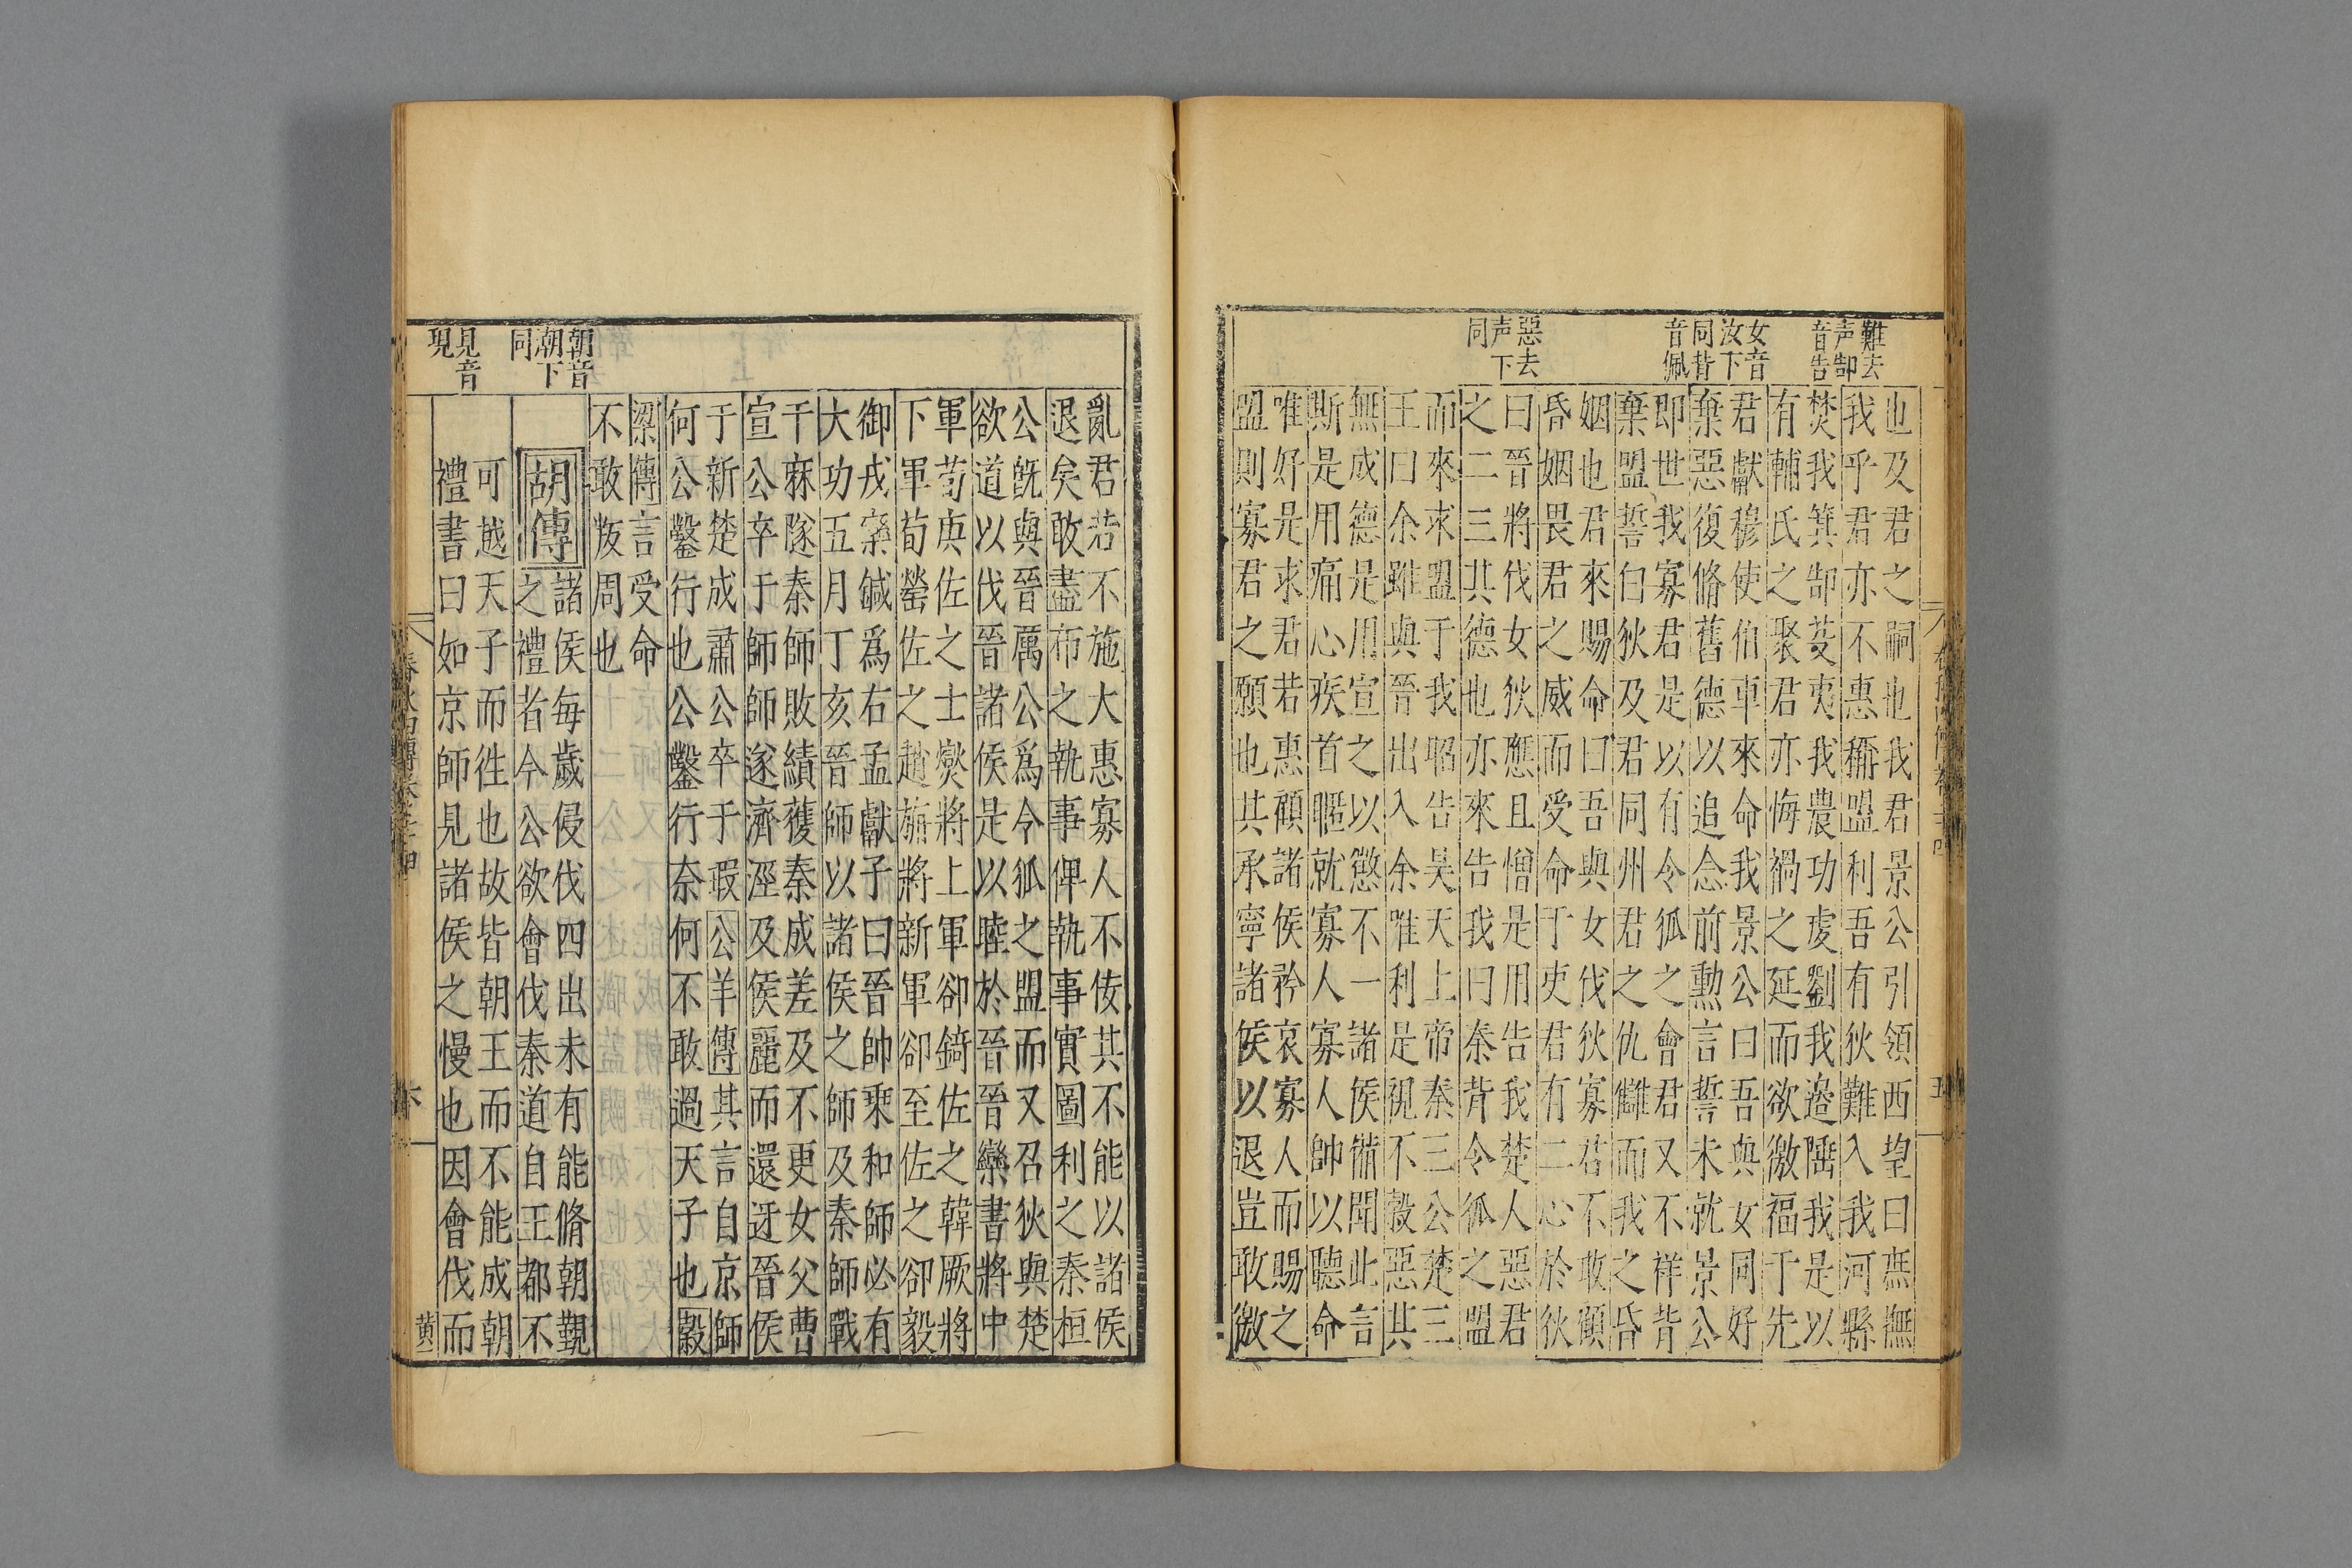 難去
声郜
音告
女音
汝下
同背
音佩
惡去
声下
同
也及君之嗣也我君景公引領西望曰庶撫
我乎君亦不惠稱盟利吾有狄難入我河縣
焚我箕郜芟夷我農功虔劉我邉陲我是以
有輔氏之聚君亦悔禍之延而欲徼福于先
君獻穆使伯車來命我景公曰吾與女同好
棄惡復脩舊德以追念前勲言誓未就景公
即世我寡君是以有令狐之會君又不祥背
棄盟誓白狄及君同州君之仇讎而我之昏
姻也君來賜命曰吾與女伐狄寡君不敢顧
昏姻畏君之威而受命于吏君有二心於狄
曰晉將伐女狄應且憎是用告我楚人惡君
之二三其德也亦來告我曰秦背令狐之盟
而來求盟于我昭告昊天上帝秦三公楚三
王曰余雖與晉出入余唯利是視不穀惡其
無成德是用宣之以懲不一諸侯備聞此言
斯是用痛心疾首暱就寡人寡人帥以聽命
唯好是求君若惠顧諸侯矜哀寡人而賜之
盟則寡君之願也其承寧諸侯以退豈敢徼
朝音
潮下
同
見音
現
亂君若不施大惠寡人不佞其不能以諸侯
退矣敢盡布之執事俾執事實圖利之秦桓
公旣與晉厲公爲令狐之盟而又召狄與楚
欲道以伐晉諸侯是以睦於晉晉欒書將中
軍荀庚佐之士燮將上軍卻錡佐之韓厥將
下軍荀罃佐之趙旃將新軍卻至佐之卻毅
御戎欒鍼爲右孟獻子曰晉帥乘和師必有
大功五月丁亥晉師以諸侯之師及秦師戰
于麻隧秦師敗績獲秦成差及不更女父曹
宣公卒于師師遂濟涇及侯麗而還迓晉侯
于新楚成肅公卒于瑕公羊傳其言自京師
何公鑿行也公鑿行奈何不敢過天子也穀
梁傳言受命
不敢叛周也
胡傳
諸侯每歲侵伐四出未有能脩朝覲
之禮者今公欲會伐秦道自王都不
可越天子而徃也故皆朝王而不能成朝
禮書曰如京師見諸侯之慢也因會伐而
春秋四傳卷二十四
六